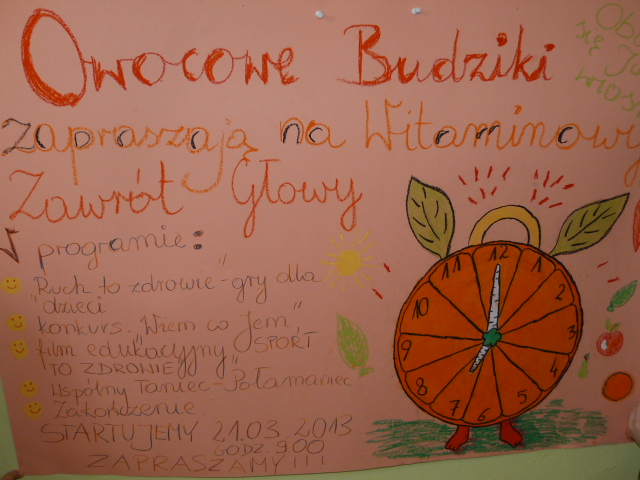 Owocowe Budziki
zapraszają na Witaminowy
Zawrót Głowy
W programie:
Ruch to zdrowie"-gry dla
"dzieci
konkurs. "Wiem co jem"
film edukacyjny "SPORT
TO ZDROWIE"
Wspólny Taniec-Połamaniec
Zakończenie
STARTUJEMY 21.03.2013
GODZ. 9.00
ZAPRASZAMY!!!
się
12
1
2
3
4
5
6
7
8
9
10
11